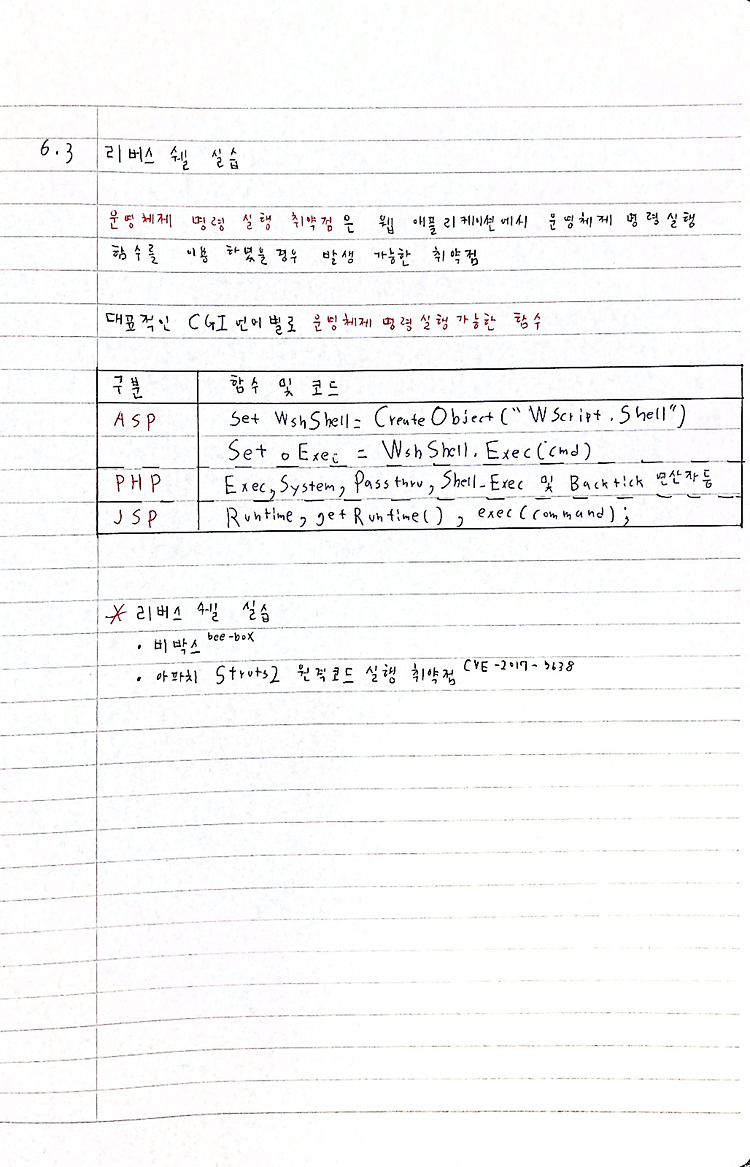 6.3 리버스 쉘 실습
운영체제 명령 실행 취약점은 웹 애플리케이션에서 운영체제 명령실행
함수를 이용 하였을경우 발생 가능한 취약점
대표적인 CGI 언어별로 운영체제 명령실행가능한 함수
구분 함수 및 코드
ASP Set WshShell = CreateObject("WScript.Shell")
Set oExec = WshShell.Exec(cmd)
PHP Exec, System, Passthru, Shell-Exec 및 Backtick 연산자등
JSP Runtime, getRuntime(), exec(command);
* 리버스 쉘 실습
• 비박스 bee-box
• 아파치 Struts2 원격코드 실행 취약점 CVE-2017-5638